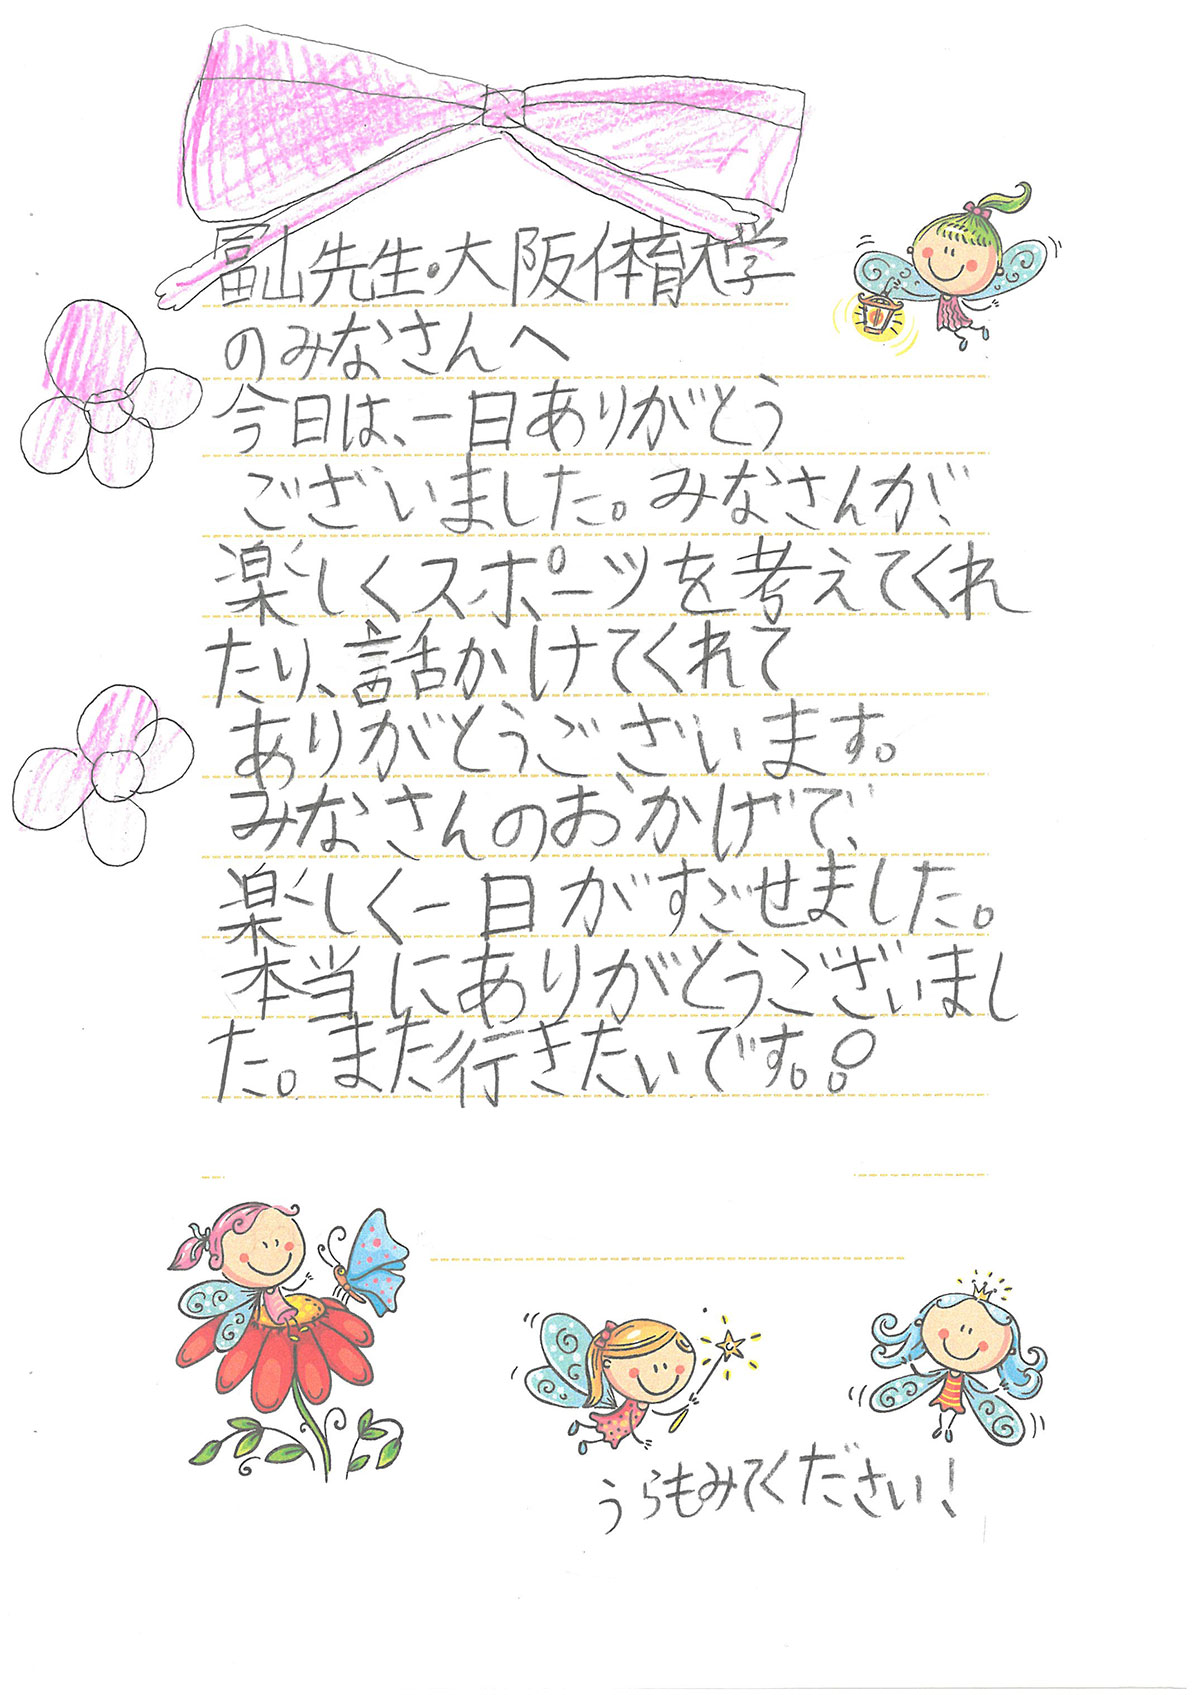 冨山先生・大阪体育大学
のみなさんへ
今日は、一日ありがとう
ございました。みなさんが、
楽しくスポーツを考えてくれ
たり、話かけてくれて
ありがとうございます。
みなさんのおかげで、
楽しく一日がすごせました。
本当にありがとうございまし
た。また行きたいです。
うらもみてください！